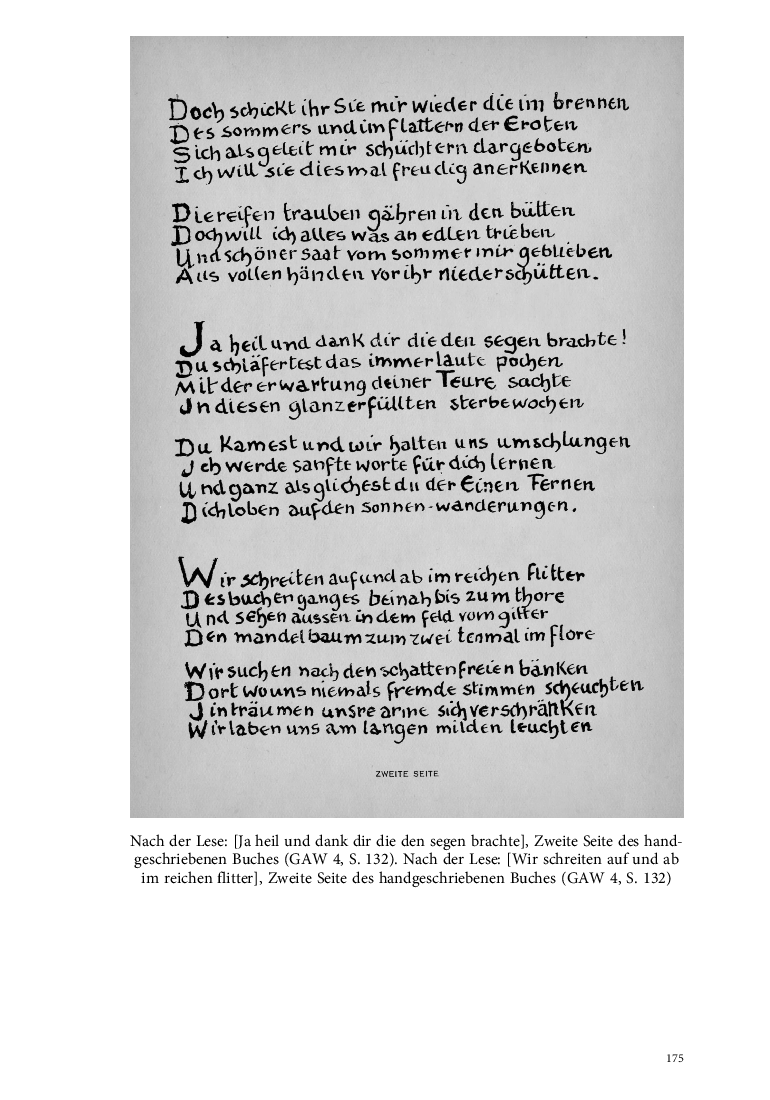 Doch schickt ihr Sie mir wieder die im brennen
Des sommers und im flattern der Eroten
Sich als geleit mir schüchtern dargeboten
Ich will sie diesmal freudig anerkennen
Die reifen trauben gähren in den bütten
Doch will ich alles was an edlen trieben
Und schöner saat vom sommer mir geblieben
Aus vollen händen vor ihr niederschütten.
Ja heil und dank dir die den segen brachte!
Du schläfertest das immer laute pochen
Mit der erwartung deiner Teure sachte
In diesen glanzerfüllten sterbewochen
Du kamest und wir halten uns umschlungen
Ich werde sanfte worte für dich lernen
Und ganz als glichest du der Einen Fernen
Dich loben auf den sonnen-wanderungen.
Wir schreiten auf und ab im reichen flitter
Des buchenganges beinah bis zum thore
Und sehen aussen in dem feld vom gitter
Den mandelbaum zum zweitenmal im flore
Wir suchen nach den schattenfreien bänken
Dort wo uns niemals fremde stimmen scheuchten
In träumen unsre arme sich verschränken
Wir laben uns am langen milden leuchten
ZWEITE SEITE
Nach der Lese: [Ja heil und dank dir die den segen brachte], Zweite Seite des hand-
geschriebenen Buches (GAW 4, S. 132). Nach der Lese: [Wir schreiten auf und ab
im reichen flitter], Zweite Seite des handgeschriebenen Buches (GAW 4, S. 132)
175